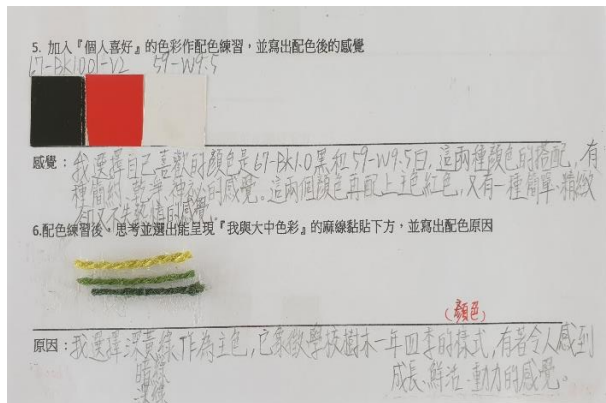 5. 加入『個人喜好』的色彩作配色練習，並寫出配色後的感覺
67-BK1.0 01-V2 59-W9.5
感覺：我選擇自己喜歡的顏色是67-BK1.0黑和59-W9.5白，這兩種顏色的搭配，有
種簡約、乾淨、的感覺。這兩個顏色再配上主色紅色，又有一種簡單、精緻
但又不失熱情的感覺。
6.配色練習後，思考並選出能呈現『我與大中色彩』的麻線黏貼下方，並寫出配色原因
(顏色)
原因：我選擇深黃綠作為主色，它象徵學校樹木一年四季的樣式，有著令人感到
暗綠
成長、鮮活、動力的感覺。